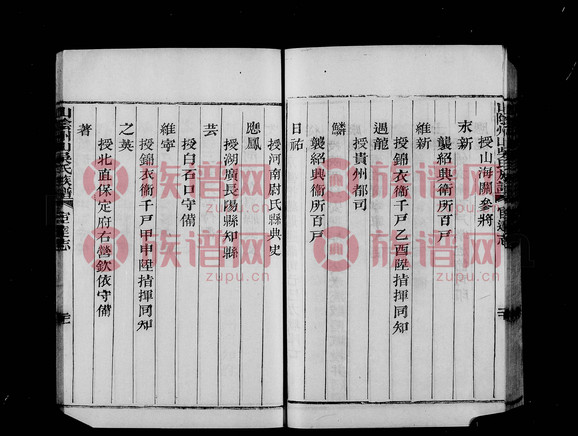 山陰州山吳氏族譜 官達志
授山海關參將
永新
襲紹興衛所百戶
維新
授錦衣衞千戶乙酉陞指揮同知
遇龍
授貴州都司
鱗
襲紹興衛所百戶
日祐
授河南尉氏縣典史
應鳳
授湖廣長陽縣知縣
芸
授白石口守備
維寧
授錦衣衞千戶甲申陞指揮同知
之英
授北直保定府右營欽依守備
著
山陰州山吳氏族譜 官達志
族谱网
zupu.cn
族谱网
zupu.cn
族谱网
zupu.cn
族谱网
zupu.cn